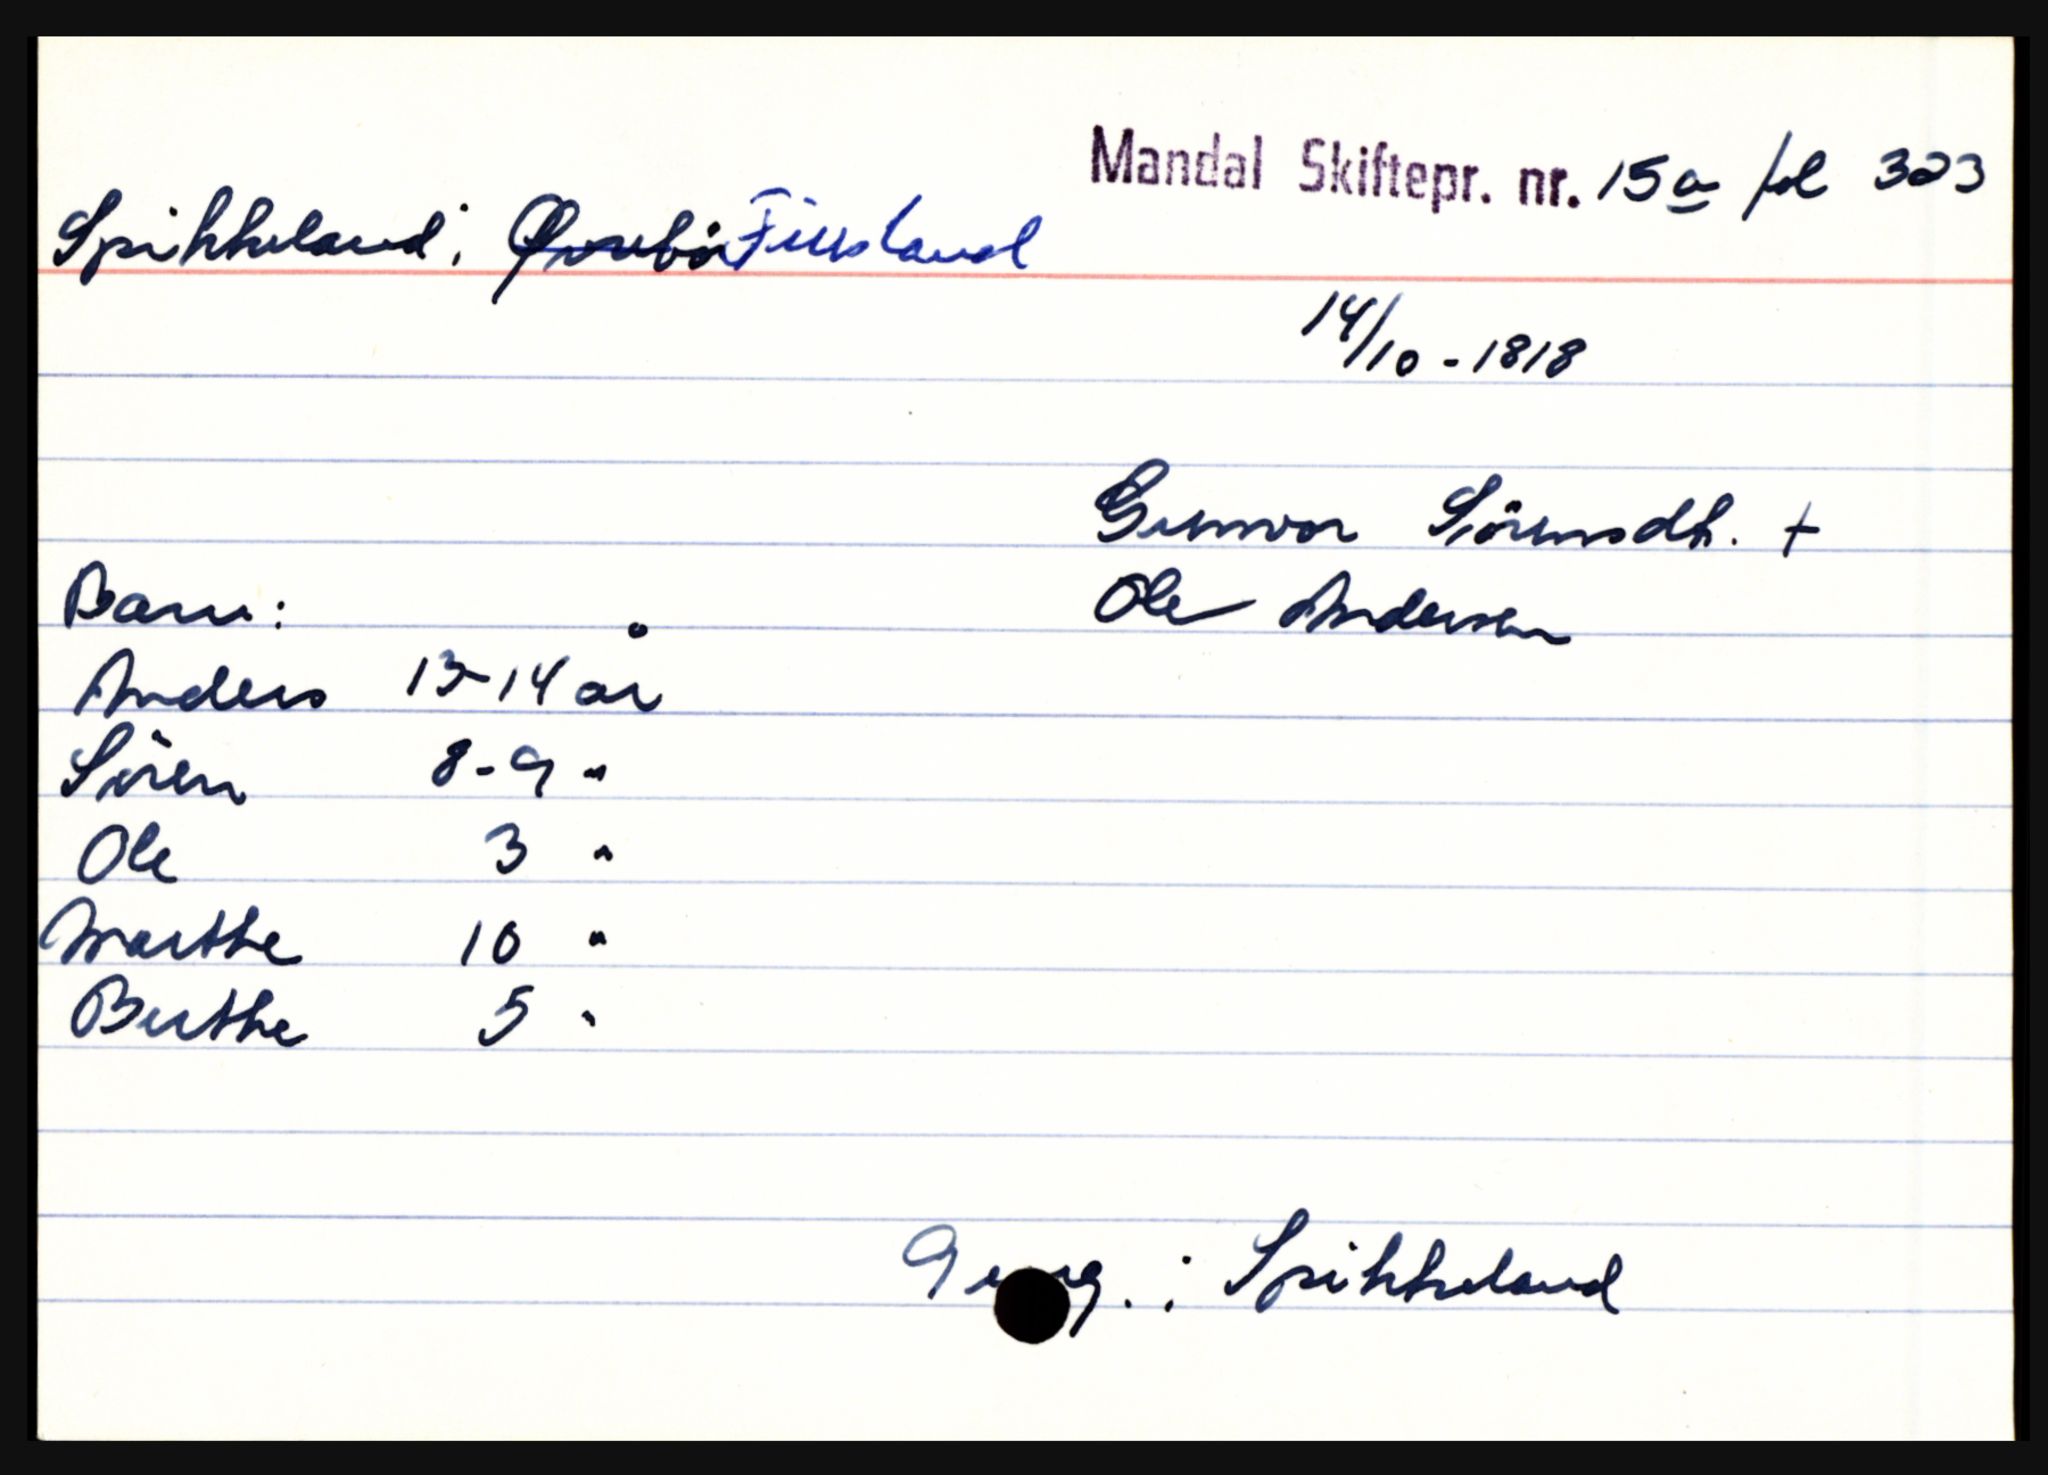 Mandal Skiftepr. nr. 15a fol 323
Spikkeland, Øvrebø Finsland
14/10 - 1818
Gunvor Sörensdt. +
Ole Andersen
Barn:
Anders 13-14 år
Sören 8-9 "
Ole 3 "
Marthe 10 "
Berthe 5 "
: Spikkeland